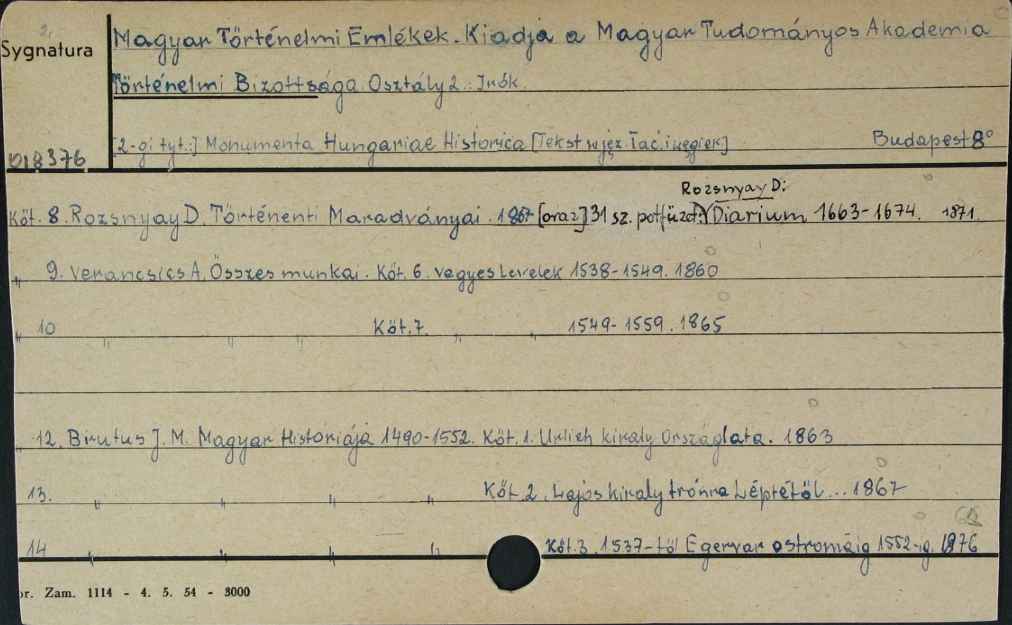 Sygnatura
Magyar Törtėnelmi Emlėkek. Kiadja a Magyar Tudományos Akademia
Törtėnelmi Bizottsága Osztály 2. Irók.
[2-gi tyt.:] Monumenta Hungariae Historica [Tekst w jęz. łac. i węgier.] Budapest 8°
018376
Rozsnyay D:
Köt. 8. Rozsnyay D. Törtėnenti Maradványai. 1867 [oraz] 31 sz. potfüzet: Diarium 1663-1674. 1871.
" 9. Verancsics A. Összes munkai. Köt. 6. vegyes Levelek 1538-1549. 1860
" 10 " " " Köt. 7. " " 1549-1559. 1865
" 12. Brutus J. M. Magyar Historiájá 1490-1552. Köt. 1. Urlich kiraly Országlata. 1863
" 13. " " " " Köt. 2. Lajos kiraly trónra Lėptėtöl ... 1867
" 14 " " " " Köt. 3. 1537-töl Egervar ostromáig 1552-ig. 1876
or. Zam. 1114 - 4. 5. 54 - 3000